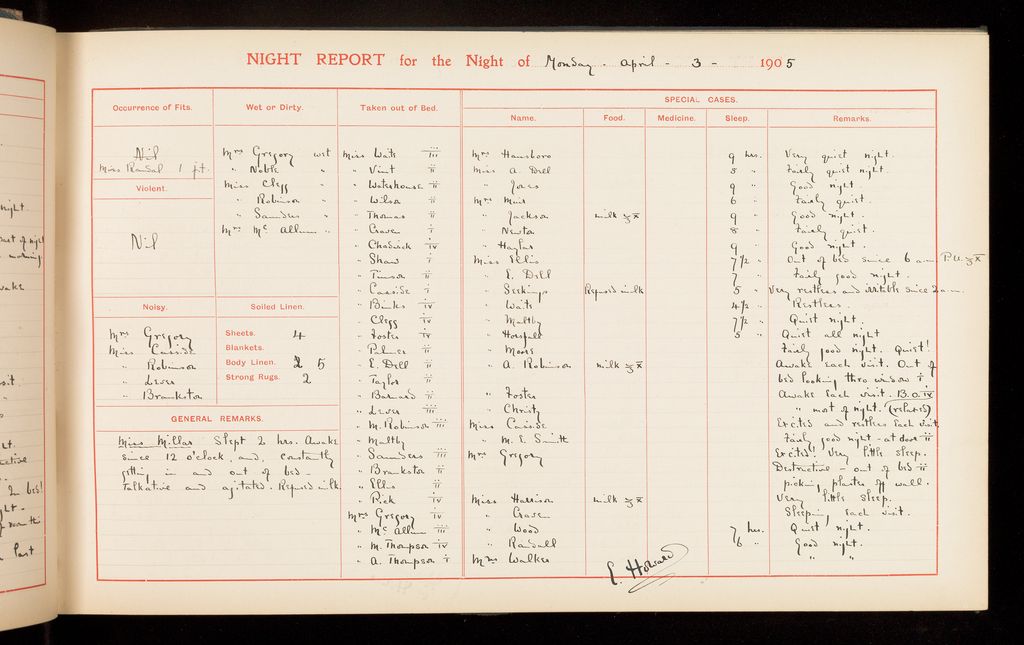 NIGHT REPORT for the Night of Monday. April - 3 - 1905
Occurrence of Fits.
Nil
Miss Randal 1 fit.
Violent.
Nil
Noisy.
Mrs Gregory
Miss Casside
" Robinson
" Lever
" Brankston
Wet or Dirty.
Mrs Gregory wet
" Noble "
Miss Clegg "
" Robinson "
" Saunders "
Mrs Mc Allum "
Soiled Linen.
Sheets. 4
Blankets.
Body Linen. 2 5
Strong Rugs. 2
GENERAL REMARKS.
Miss Millar Slept 2 hrs. Awake
since 12 o'clock, and, constantly
getting in and out of bed -
Talkative and agitated. Refused milk.
Taken out of Bed.
Miss Waite iii
" Vint ii
" Waterhouse ii
" Wilson ii
" Thomas ii
" Craven i
" Chadwick iv
" Shaw i
" Tinson ii
" Casside i
" Binks iv
" Clegg iv
" Foster iv
" Palmer ii
" E. Dell ii
" Taylor ii
" Barnard ii
" Lever iii
" M. Robinson iii
" Maltby ii
" Saunders iii
" Brankston ii
" Ellis ii
" Pick iv
Mrs Gregory iv
" Mc Allum iii
" M. Thompson iv
" A. Thompson i
SPECIAL CASES.
Name. Food. Medicine. Sleep. Remarks.
Mrs Hansboro 9 hrs. Very quiet night.
Miss A. Dell 5 " Fairly quiet night.
" Jones 9 " Good night.
Mrs Muir 6 " Fairly quiet.
" Jackson milk 9 " Good night.
" Newton 8 " Fairly quiet.
" Haylar 9 " Good night.
Miss Ellis 7 1/2 " Out of bed since 6 a.m. P.U.
" E. Dell 7 " Fairly good night.
" Seekings Refused milk 5 " Very restless and irritable since 2 a.m.
" Waite 4 1/2 " Restless.
" Maltby 7 1/2 " Quiet night.
" Horsfall 5 " Quiet all night
" Moore Fairly good night. Quiet!
" A. Robinson milk Awake each visit. Out of
bed looking thro window i
" Foster Awake each visit. B.O. iv
" Christy " most of night. (relaxed)
Miss Casside Excited and restless each visit
" M. E. Smith Fairly good night - at door ii
Mrs Gregory Excited! Very little sleep.
Destructive - out of bed ii
picking plaster off wall.
Miss Harrison milk Very little sleep.
" Craven Sleeping each visit.
" Wood 7 hrs. Quiet night.
" Randall 6 " Good night.
Mrs Walker " "
E. Howard